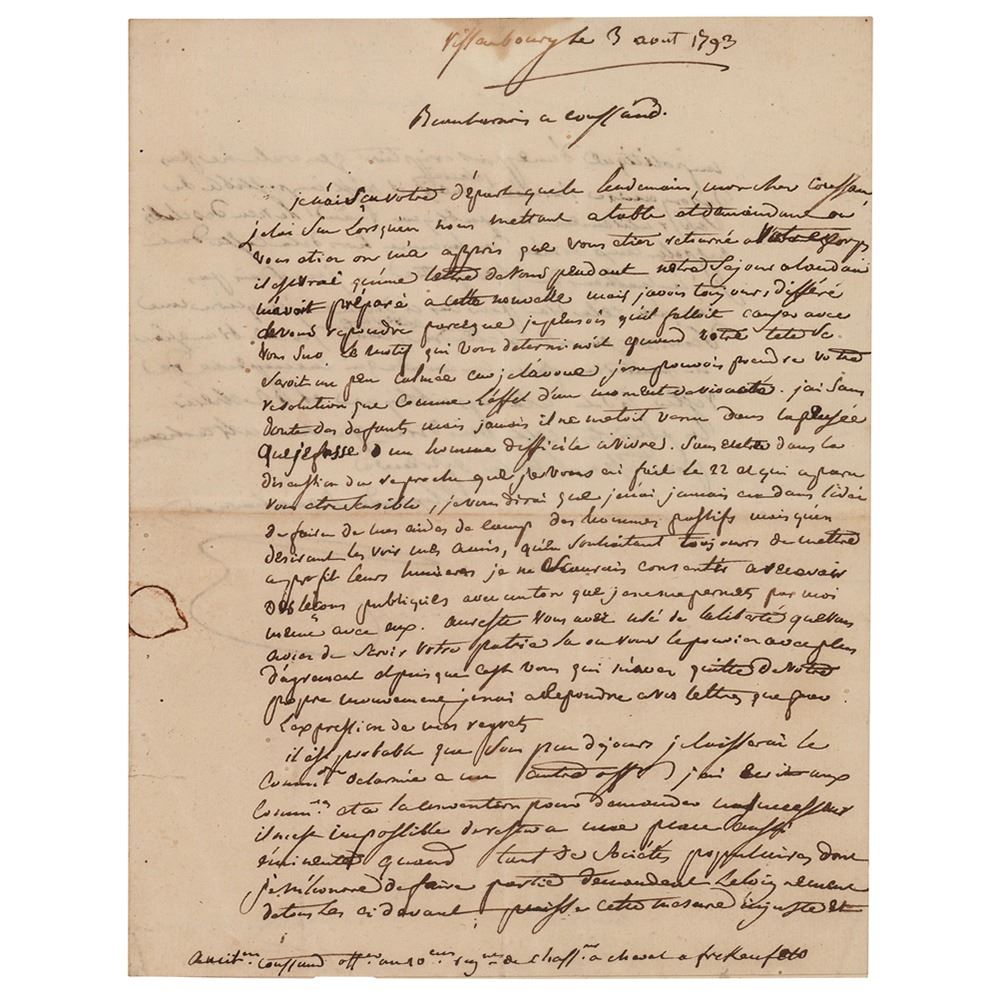 Vissenbourg le 3 aout 1793
Beauharnais a coussaud.
je n'ai su votre départ que le lendemain, mon cher coussau
je l'ai su lorsqu'en nous mettant a table et demandant où
vous etiez on m'a appris que vous etiez retourné a votre corps
il est vrai qu'une lettre de vous pendant notre sejour a landau
m'avoit préparé à cette nouvelle mais j'avois toujours différé
de vous repondre parceque je pensois qu'il falloit causer avec
vous sur le motif qui vous determinoit quand votre tete se
seroit un peu calmée car je l'avoue, je ne pouvois prendre votre
resolution que comme l'effet d'un moment de vivacité. j'ai sans
doute des defauts mais jamais il ne m'etoit venu dans la pensée
que je fusse d'un homme difficile a vivre. Sans entrer dans la
discussion du reproche que je vous ai fait le 22 et qui a paru
vous etre sensible, je vous dirai que je n'ai jamais eu dans l'idée
de faire de mes aides de camp des hommes passifs mais qu'en
desirant les voir mes amis, qu'en souhaitant toujours de mettre
a profit leurs lumieres je ne saurais consentir a recevoir
des lecons publiques avec un ton que je ne me permets pas moi
meme avec eux. au reste vous avez usé de la liberté que vous
aviez de servir votre patrie la ou vous le pouviez avec plus
d'agrement et puisque c'est vous qui m'avez quitté de votre
propre mouvement je n'ai a repondre a vos lettres que par
l'expression de mes regrets
il est probable que sous peu de jours je laisserai le
Comm.dt de l'armée a un autre off.r j'ai écrit aux
Comm.res et a la convention pour demander un successeur
il m'est impossible de rester a une place aussi
éminente quand tant de sociétés populaires dont
je m'honore de faire partie demandent l'eloignement
de tous les ci devant puisse cette mesure injuste et
au cit.en coussaud off.er au 10.eme reg.nt de chass.rs a cheval a freckenfeld